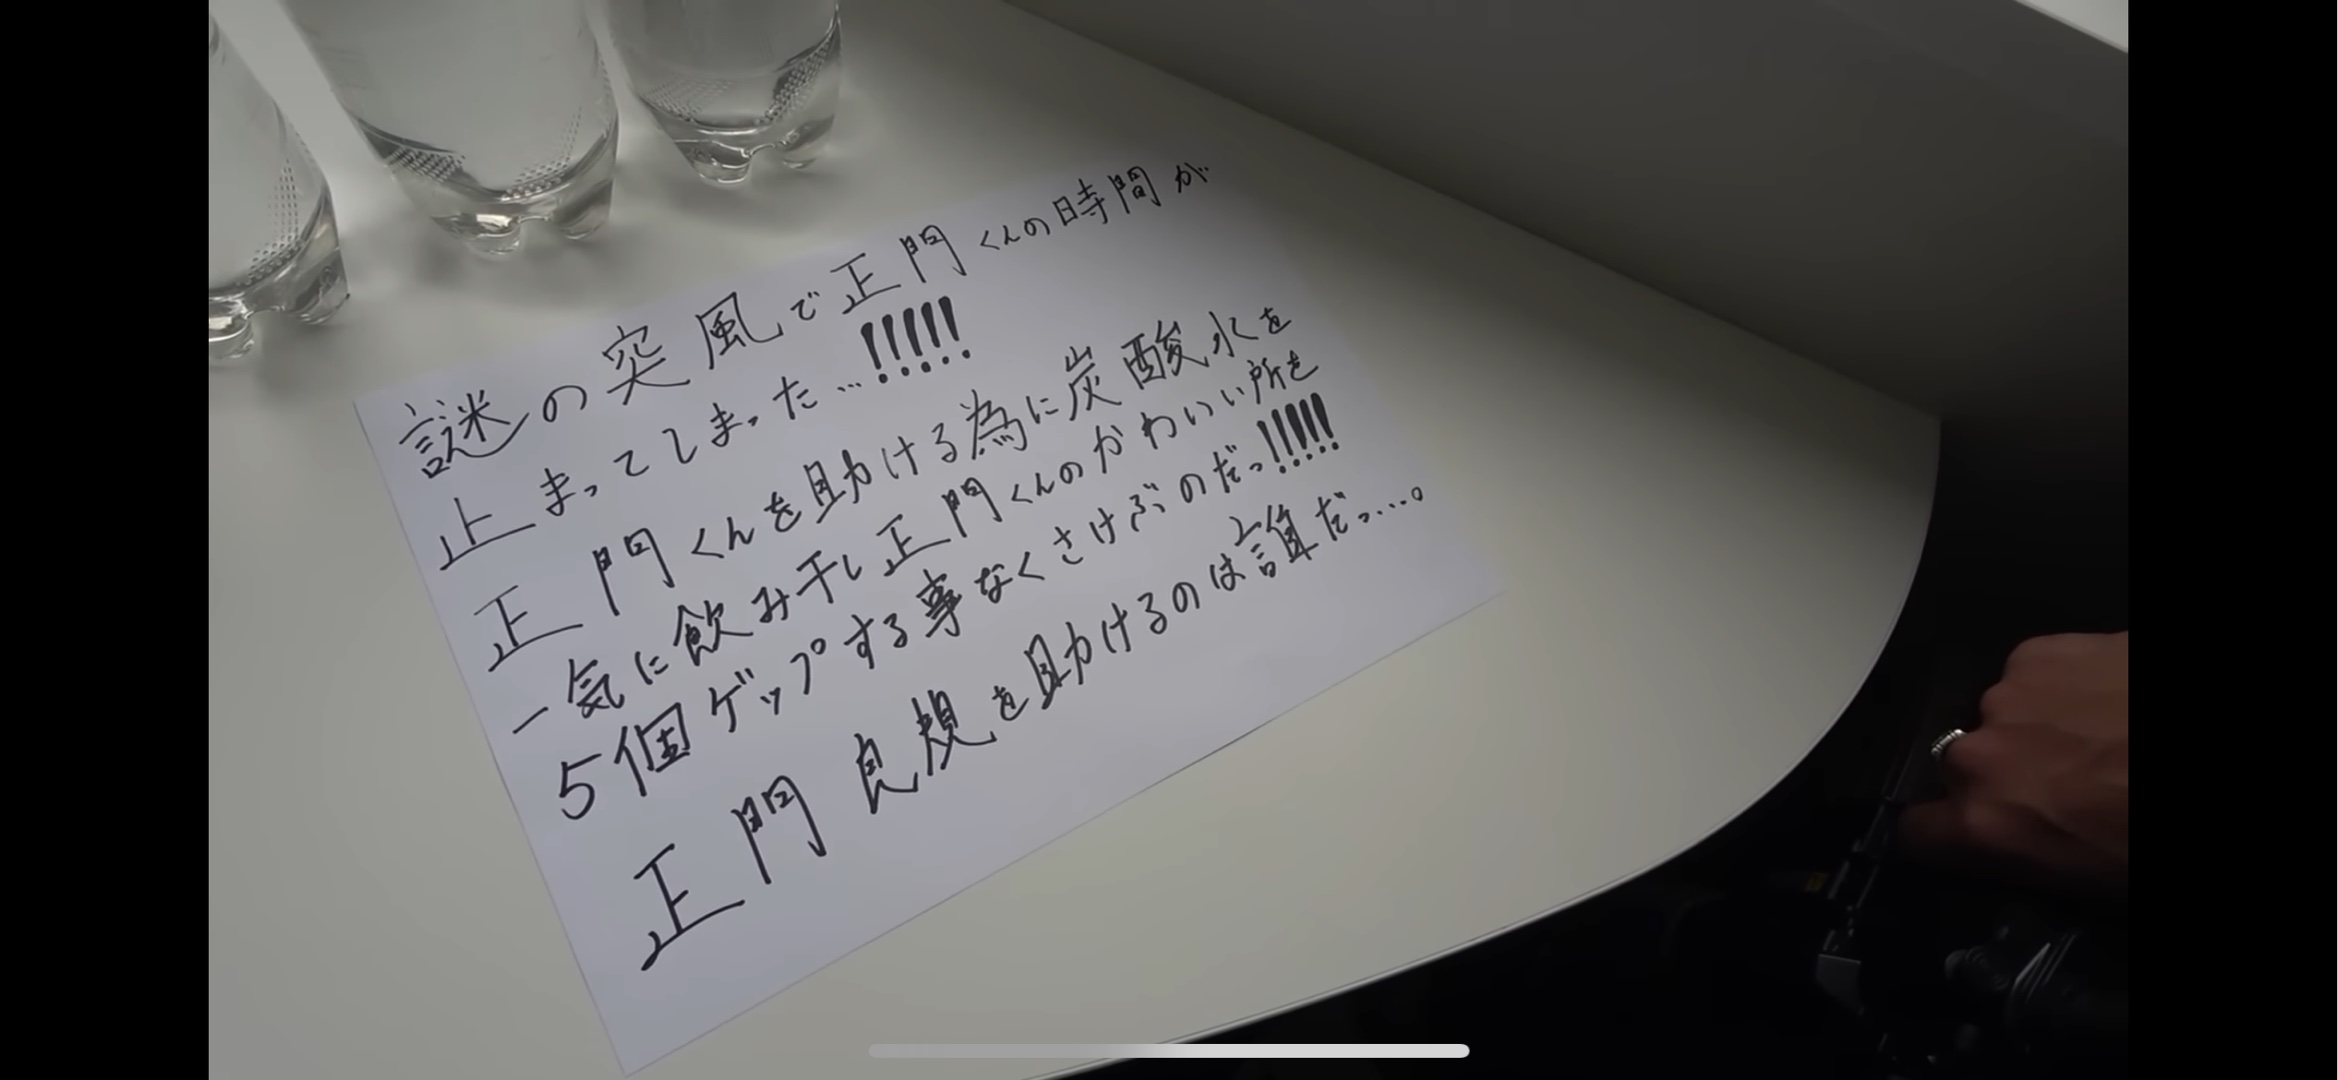 謎の突風で正門くんの時間が
止まってしまった…!!!!!
正門くんを助ける為に炭酸水を
一気に飲み干し正門くんのかわいい所を
5個ゲップする事なくさけぶのだっ!!!!!
正門良規を助けるのは誰だっ….。